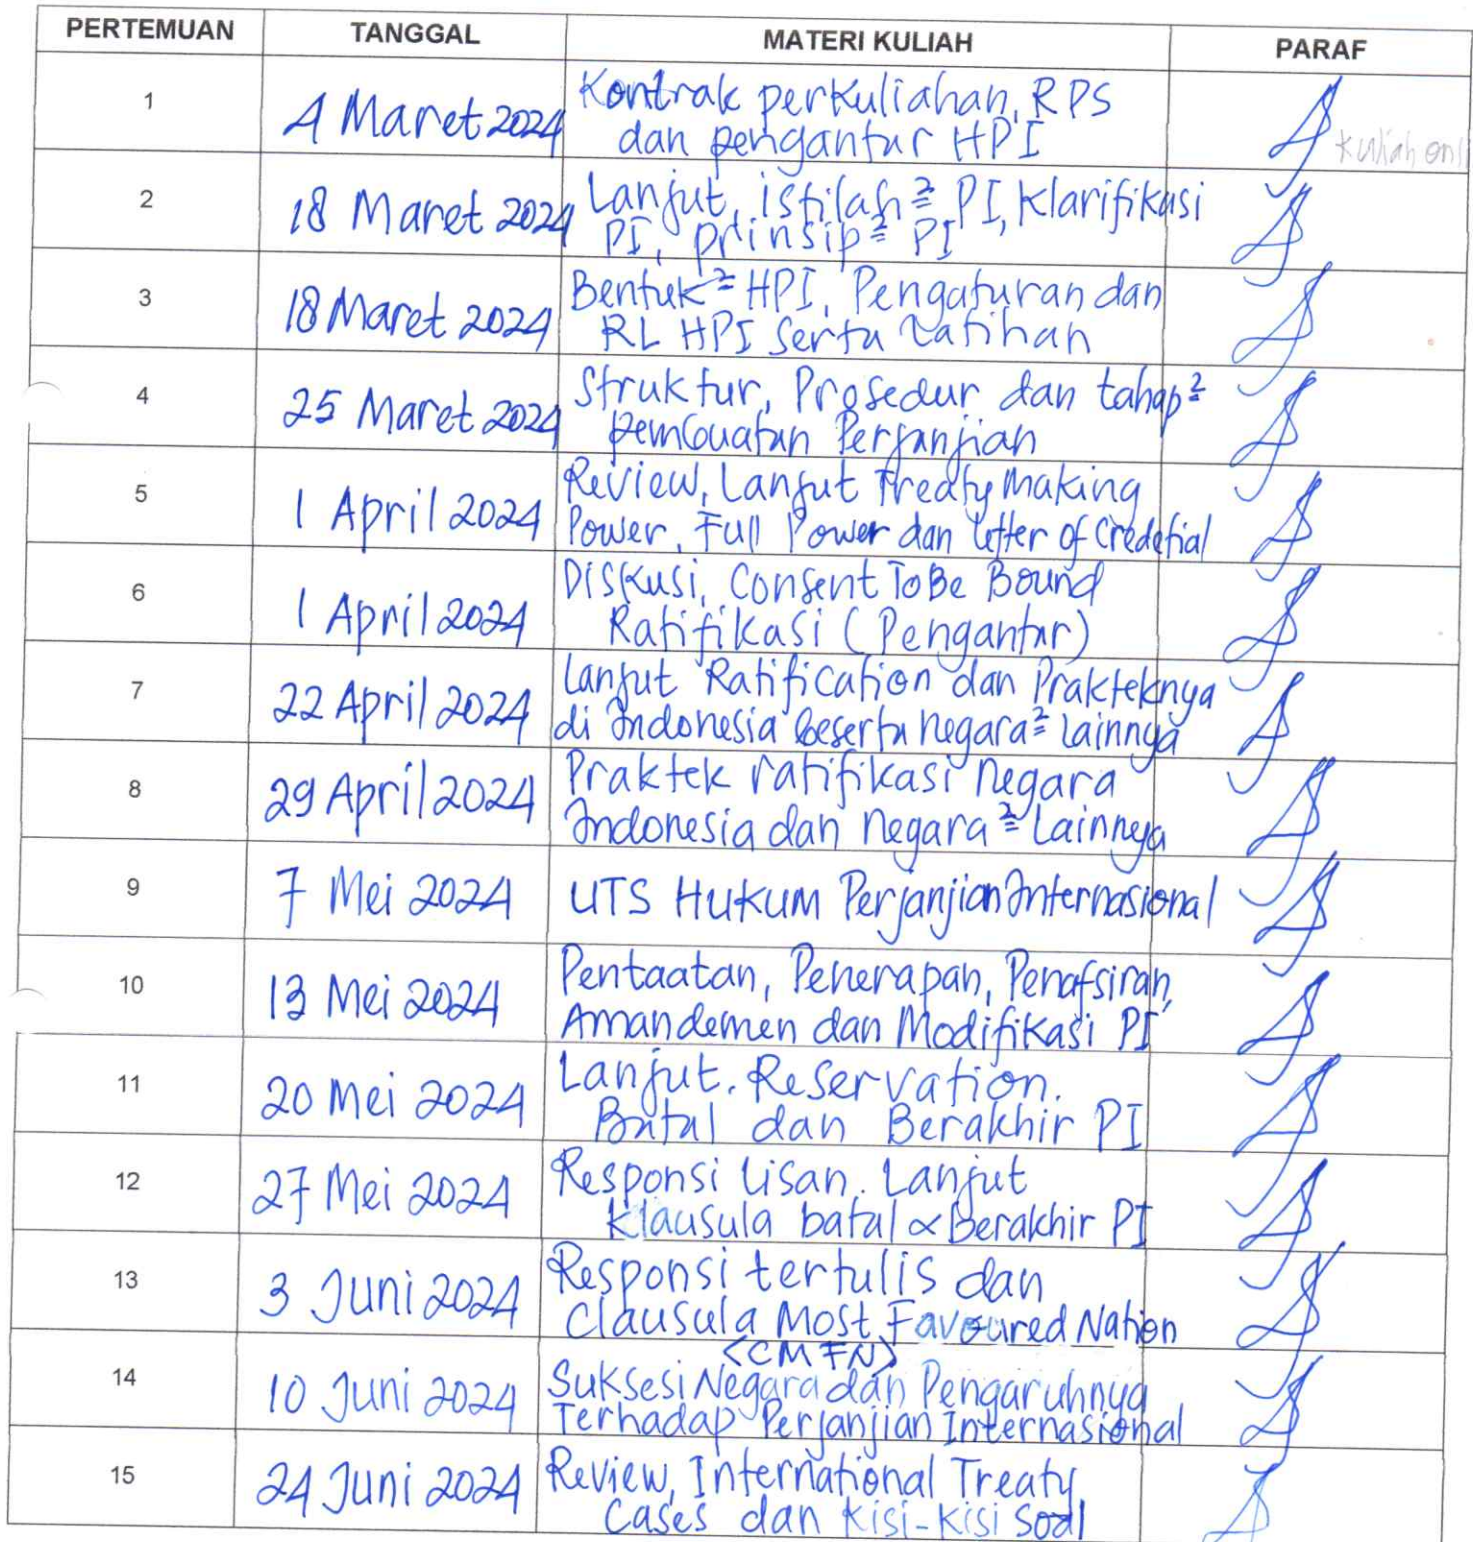 PERTEMUAN TANGGAL MATERI KULIAH PARAF
1 4 Maret 2024 Kontrak perkuliahan, RPS
dan pengantar HPI
kuliah onl
2 18 Maret 2024 Lanjut, istilah² PI, Klarifikasi
PI, prinsip² PI
3 18 Maret 2024 Bentuk² HPI, Pengaturan dan
RL HPI serta Latihan
4 25 Maret 2024 Struktur, Prosedur dan tahap²
Pembuatan Perjanjian
5 1 April 2024 Review, Lanjut Treaty Making
Power, Full Power dan Letter of Credetial
6 1 April 2024 Diskusi, Consent To Be Bound
Ratifikasi (Pengantar)
7 22 April 2024 Lanjut Ratification dan Prakteknya
di Indonesia beserta negara² lainnya
8 29 April 2024 Praktek ratifikasi negara
Indonesia dan negara² Lainneya
9 7 Mei 2024 UTS HUKUM Perjanjian Internasional
10 13 Mei 2024 Pentaatan, Penerapan, Penafsiran,
Amandemen dan Modifikasi PI
11 20 Mei 2024 Lanjut. Reservation.
Batal dan Berakhir PI
12 27 Mei 2024 Responsi Lisan. Lanjut
Klausula batal & Berakhir PI
13 3 Juni 2024 Responsi tertulis dan
Clausula Most Favoured Nation
<CMFN>
14 10 Juni 2024 Suksesi Negara dan Pengaruhnya
Terhadap Perjanjian Internasional
15 24 Juni 2024 Review, International Treaty
Cases dan Kisi-Kisi Soal